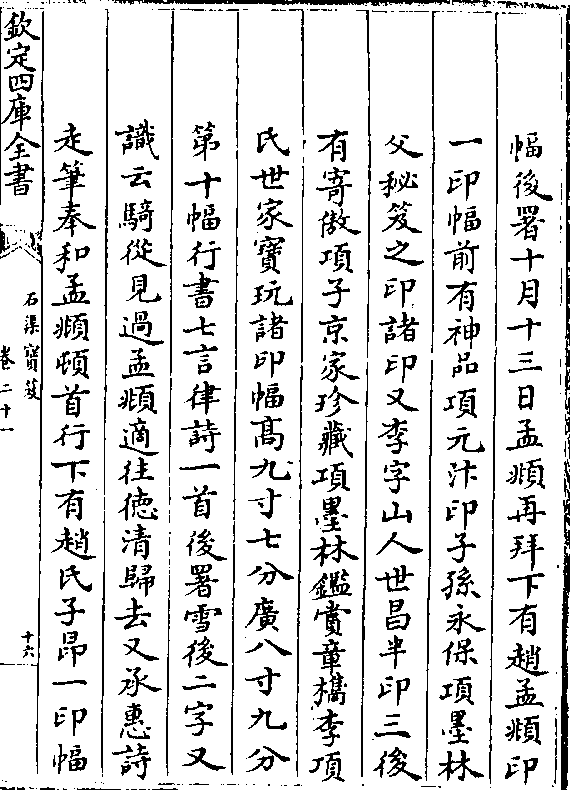 幅後署十月十三日孟頫再拜下有趙孟頫印
一印幅前有神品項元汴印子孫永保項墨林
父秘笈之印諸印又李字山人世昌半印三後
有寄傲項子京家珍藏項墨林鑑賞章檇李項
氏世家寶玩諸印幅高九寸七分廣八寸九分
第十幅行書七言律詩一首後署雪後二字又
識云騎從見過孟頫適往德清歸去又承惠詩
走筆奉和孟頫頓首行下有趙氏子昂一印幅
欽定四庫全書
石渠寶笈
卷二十一
十六